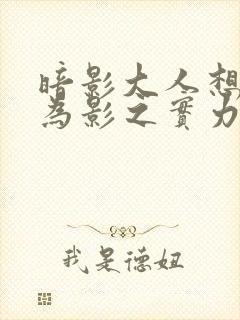 暗影大人想
為影之實力
我是德妞